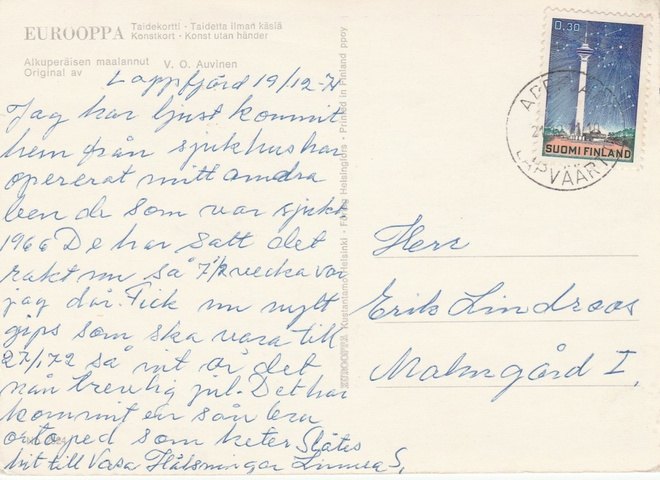 EUROOPPA
Taidekortti · Taidetta ilman käsiä
Konstkort · Konst utan händer
Alkuperäisen maalannut V. O. Auvinen
Original av
Lappfjärd 19/12-71
Jag har ljust kommit
hem från sjukhus har
opererat mitt andra
ben de som var sjukt
1966 De har satt det
rakt nu så 7 1/2 vecka var
jag där. Fick nu nytt
gips som ska vara till
27/1 72 så nit är det
nån trevlig jul. Det har
kommit en sån bra
ortoped som heter Slätis
hit till Vasa Hälsningar Linnea S,
EUROOPPA Kustantamo Helsinki · Förlag Helsingfors · Printed in Finland ppoy
0.30
SUOMI FINLAND
LAPVÄÄRTTI
Herr
Erik Lindroos
Malmgård I,